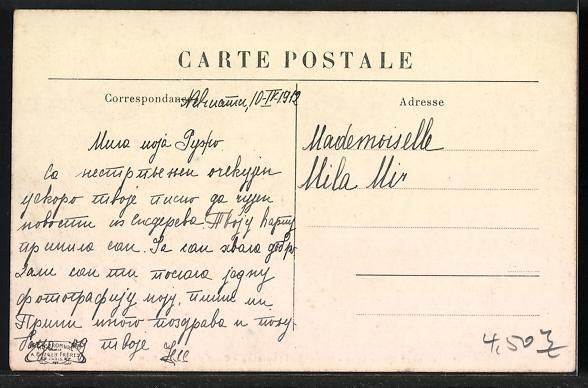 CARTE POSTALE
Correspondance
10-IX-1912
Adresse
Mademoiselle
Mila Mir
Мила моја Ружо
Са нестрпљењем очекујем
ускоро твоје писмо да чујем
новости из Твоју карту
примила сам. Ја сам хвала добро
сам ти послала једну
фотографију моју, пиши ми
Прими много поздрава и
од твоје
4,50